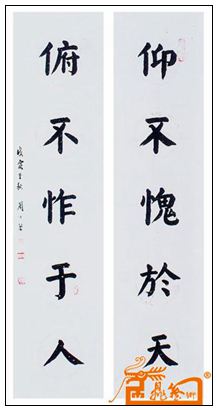 仰不愧於天
俯不怍于人